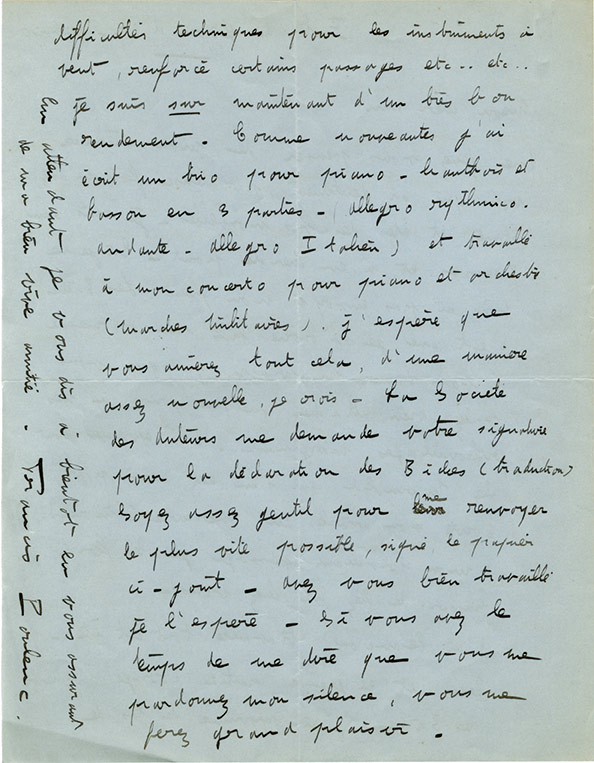 difficultés techniques pour les instruments à
vent, renforcé certains passages etc.. etc..
je suis sur maintenant d'un très bon
rendement. Comme nouveautés j'ai
écrit un trio pour piano - hautbois et
basson en 3 parties - (allegro rythmico.
andante - allegro Italien) et travaillé
à mon concerto pour piano et orchestre
(Marches Militaires). j'espère que
vous aimerez tout cela, d'une manière
assez nouvelle, je crois - La Société
des Auteurs me demande votre signature
pour la déclaration des Biches (traduction)
Soyez assez gentil pour me renvoyer
le plus vite possible, signé le papier
ci-joint - avez vous bien travaillé
je l'espère - Si vous avez le
temps de me dire que vous me
pardonnez mon silence, vous me
ferez grand plaisir.
En attendant je vous dis à bientôt en vous assurant
de ma bien vive amitié. Francis Poulenc.